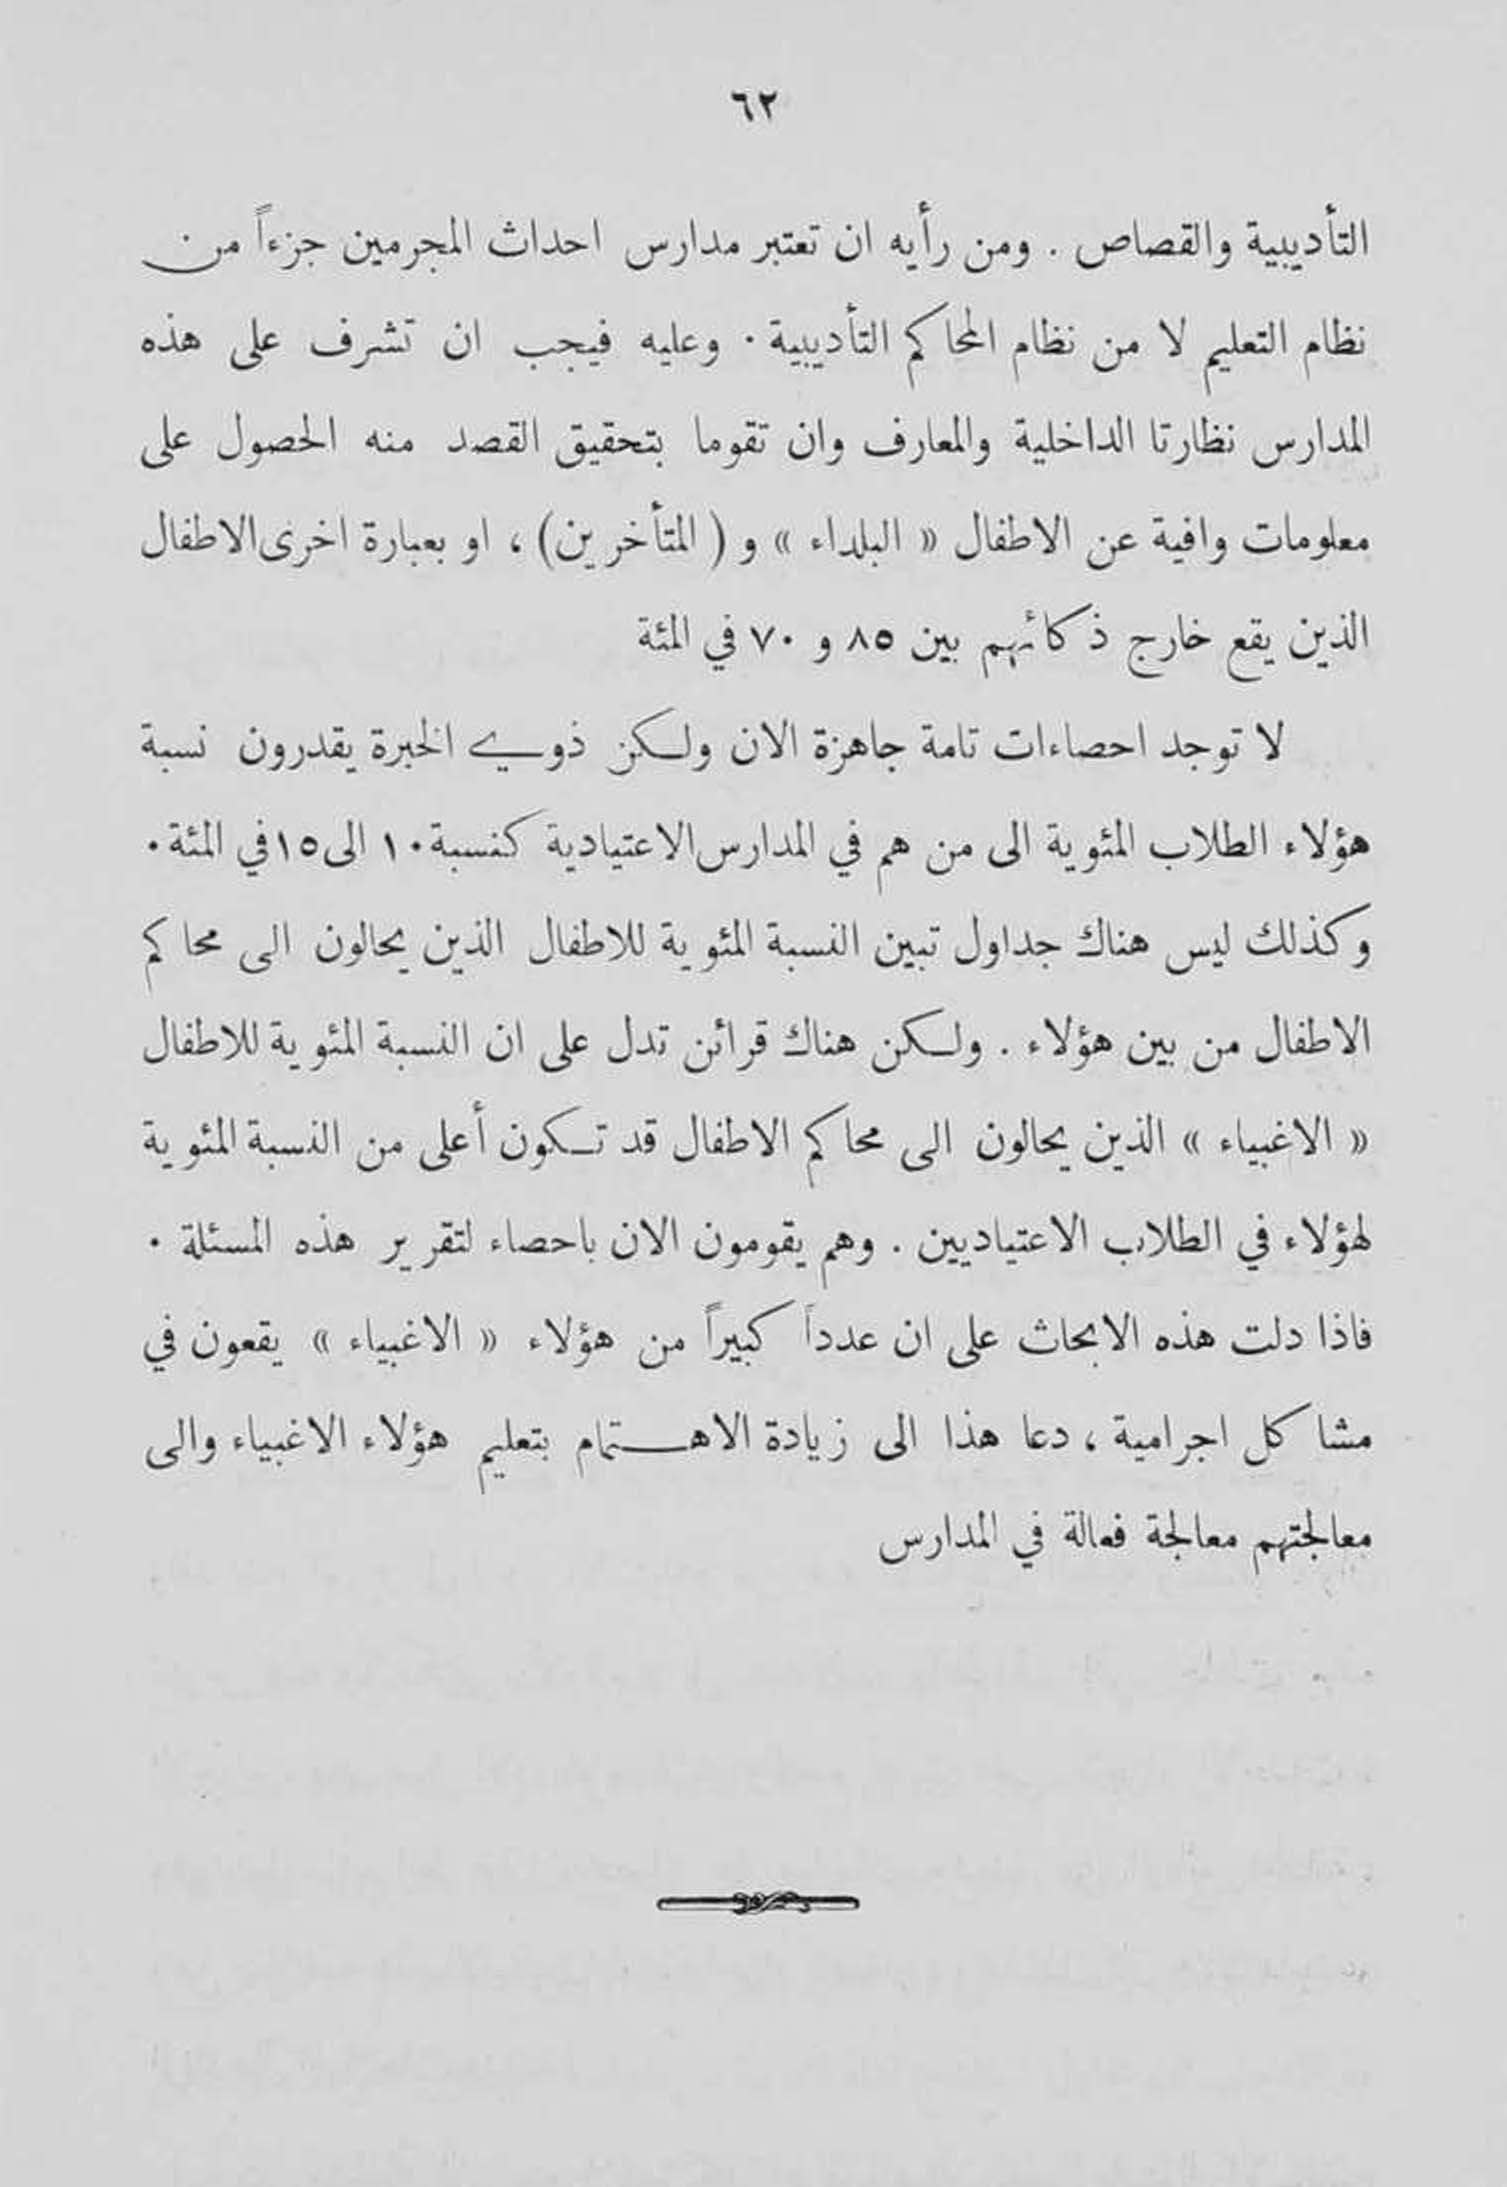 ٦٢
التأديبية والقصاص . ومن رأيه ان تعتبر مدارس احداث المجرمين جزءاً من
نظام التعليم لا من نظام المحاكم التأديبية . وعليه فيجب ان تشرف على هذه
المدارس نظارتا الداخلية والمعارف وان تقوما بتحقيق القصد منه الحصول على
معلومات وافية عن الاطفال « البلداء » و ( المتأخرين ) ، او بعبارة اخرى الاطفال
الذين يقع خارج ذكائهم بين ٨٥ و ٧٠ في المئة
لا توجد احصاءات تامة جاهزة الان ولكن ذوي الخبرة يقدرون نسبة
هؤلاء الطلاب المئوية الى من هم في المدارس الاعتيادية كنسبة ١٠ الى ١٥ في المئة .
وكذلك ليس هناك جداول تبين النسبة المئوية للاطفال الذين يحالون الى محاكم
الاطفال من بين هؤلاء . ولكن هناك قرائن تدل على ان النسبة المئوية للاطفال
« الاغبياء » الذين يحالون الى محاكم الاطفال قد تكون أعلى من النسبة المئوية
لهؤلاء في الطلاب الاعتياديين . وهم يقومون الان باحصاء لتقرير هذه المسئلة .
فاذا دلت هذه الابحاث على ان عدداً كبيراً من هؤلاء « الاغبياء » يقعون في
مشاكل اجرامية ، دعا هذا الى زيادة الاهتمام بتعليم هؤلاء الاغبياء والى
معالجتهم معالجة فعالة في المدارس